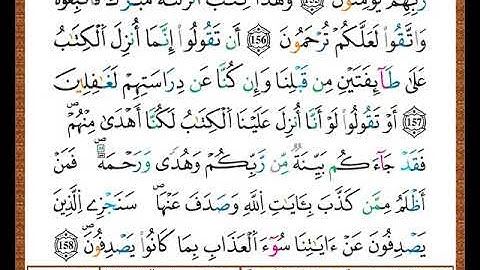 رَبِّهِمْ يُؤْمِنُونَ 155 وَهَٰذَا كِتَٰبٌ أَنزَلْنَٰهُ مُبَٰرَكٌ فَٱتَّبِعُوهُ
وَٱتَّقُوا۟ لَعَلَّكُمْ تُرْحَمُونَ 156 أَن تَقُولُوٓا۟ إِنَّمَآ أُنزِلَ ٱلْكِتَٰبُ
عَلَىٰ طَآئِفَتَيْنِ مِن قَبْلِنَا وَإِن كُنَّا عَن دِرَاسَتِهِمْ لَغَٰفِلِينَ
157 أَوْ تَقُولُوا۟ لَوْ أَنَّآ أُنزِلَ عَلَيْنَا ٱلْكِتَٰبُ لَكُنَّآ أَهْدَىٰ مِنْهُمْ ۖ
فَقَدْ جَآءَكُم بَيِّنَةٌ مِّن رَّبِّكُمْ وَهُدًى وَرَحْمَةٌ ۚ فَمَنْ
أَظْلَمُ مِمَّن كَذَّبَ بِـَٔايَٰتِ ٱللَّهِ وَصَدَفَ عَنْهَا ۗ سَنَجْزِى ٱلَّذِينَ
يَصْدِفُونَ عَنْ ءَايَٰتِنَا سُوٓءَ ٱلْعَذَابِ بِمَا كَانُوا۟ يَصْدِفُونَ 158